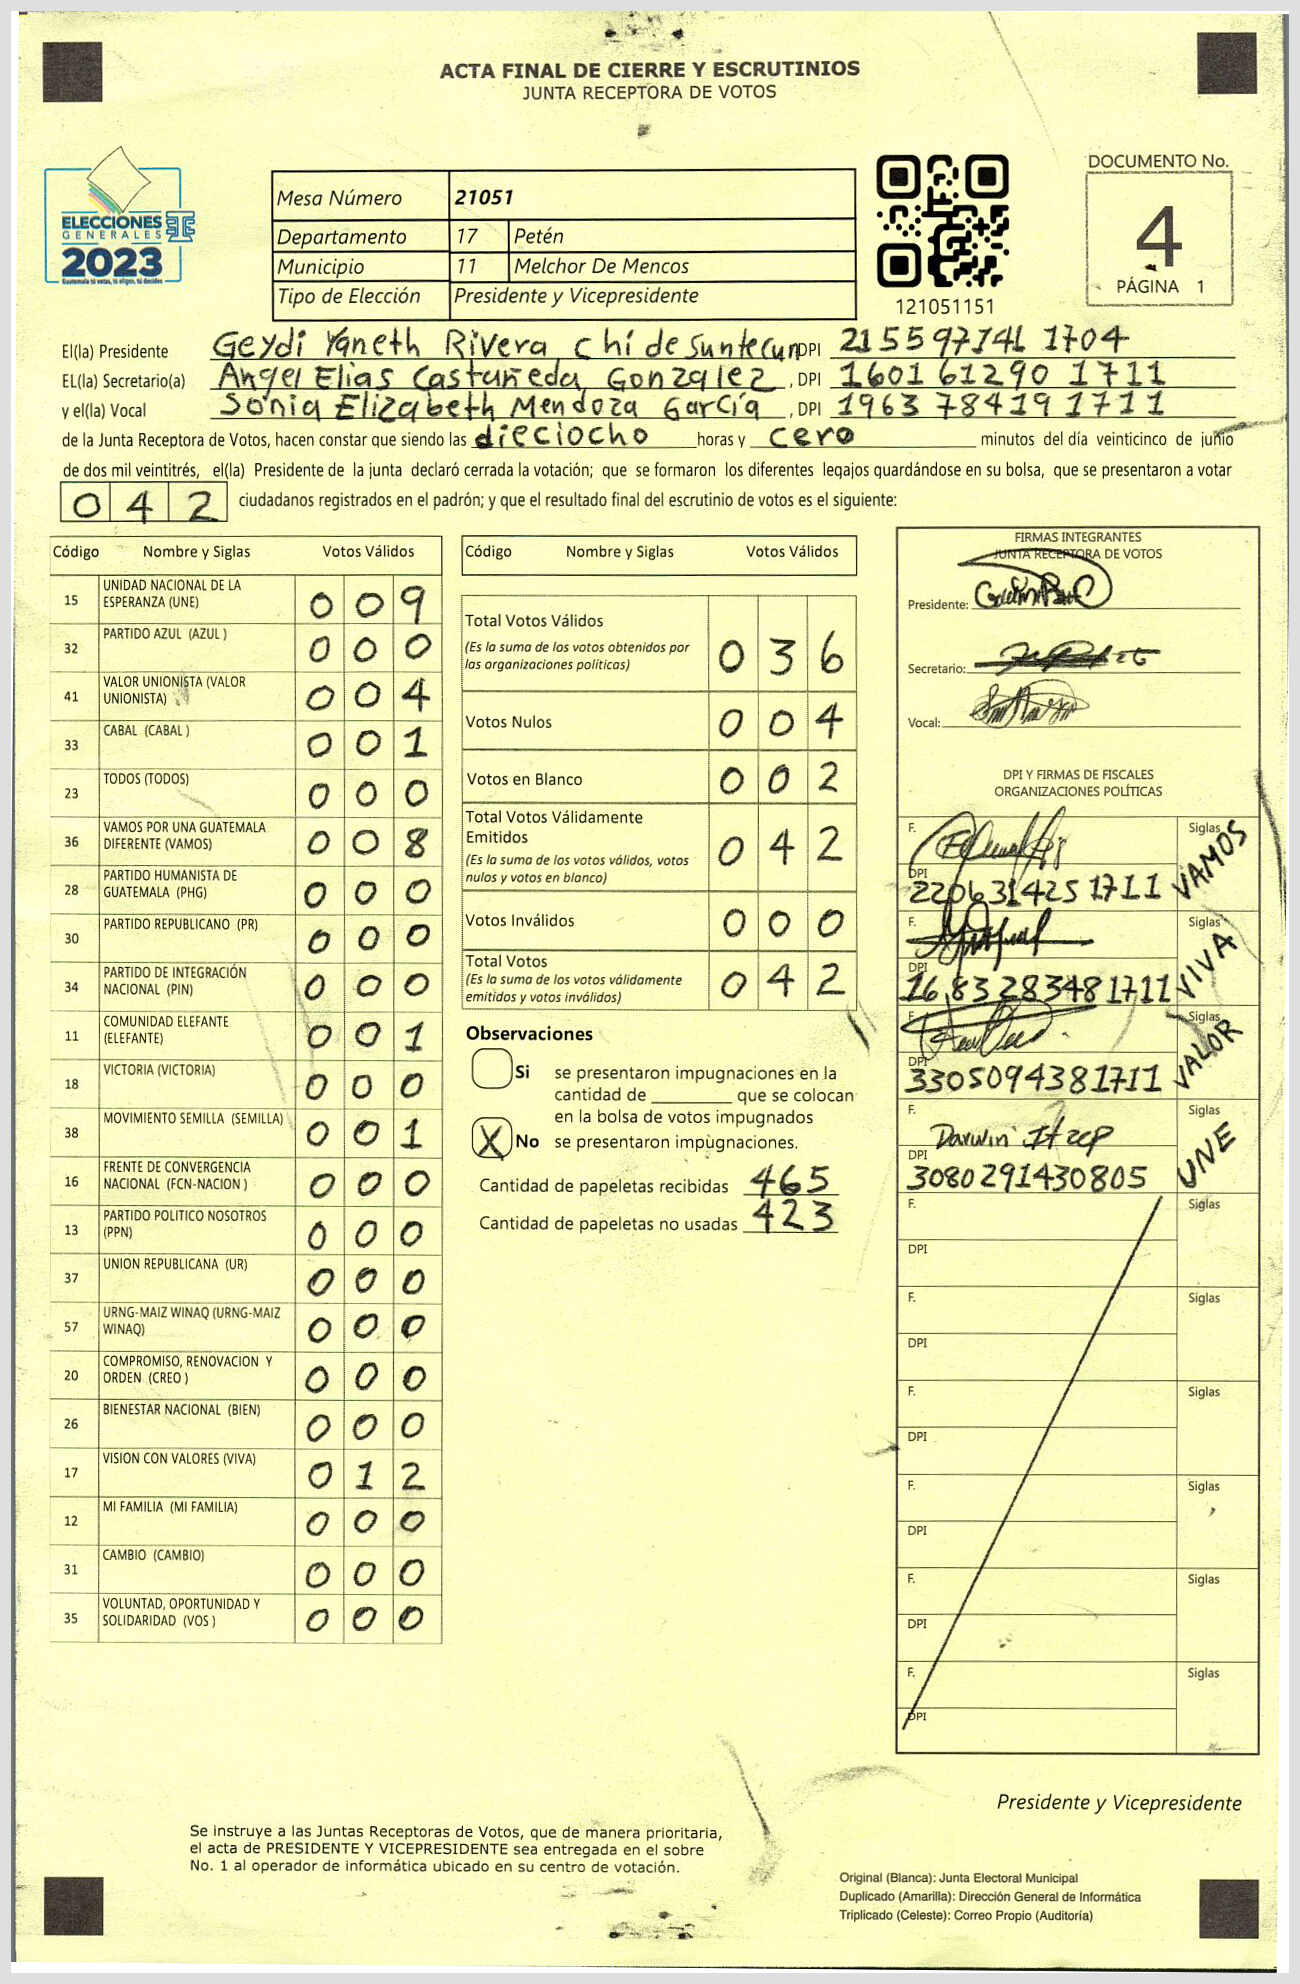 ACTA FINAL DE CIERRE Y ESCRUTINIOS
JUNTA RECEPTORA DE VOTOS
ELECCIONES
GENERALES
2023
Guatemala tú votas, tú eliges, tú decides
Mesa Número 21051
Departamento 17 Petén
Municipio 11 Melchor De Mencos
Tipo de Elección Presidente y Vicepresidente
121051151
DOCUMENTO No.
4
PÁGINA 1
El(la) Presidente Geydi Yaneth Rivera Chi de Suntecun DPI 215597141 1704
EL(la) Secretario(a) Angel Elias Castañeda Gonzalez, DPI 1601 61290 1711
y el(la) Vocal Sonia Elizabeth Mendoza García, DPI 1963 78419 1711
de la Junta Receptora de Votos, hacen constar que siendo las dieciocho horas y cero minutos del día veinticinco de junio
de dos mil veintitrés, el(la) Presidente de la junta declaró cerrada la votación; que se formaron los diferentes legajos quardándose en su bolsa, que se presentaron a votar
042 ciudadanos registrados en el padrón; y que el resultado final del escrutinio de votos es el siguiente:
Código Nombre y Siglas Votos Válidos
15 UNIDAD NACIONAL DE LA ESPERANZA (UNE) 009
32 PARTIDO AZUL (AZUL ) 000
41 VALOR UNIONISTA (VALOR UNIONISTA) 004
33 CABAL (CABAL ) 001
23 TODOS (TODOS) 000
36 VAMOS POR UNA GUATEMALA DIFERENTE (VAMOS) 008
28 PARTIDO HUMANISTA DE GUATEMALA (PHG) 000
30 PARTIDO REPUBLICANO (PR) 000
34 PARTIDO DE INTEGRACIÓN NACIONAL (PIN) 000
11 COMUNIDAD ELEFANTE (ELEFANTE) 001
18 VICTORIA (VICTORIA) 000
38 MOVIMIENTO SEMILLA (SEMILLA) 001
16 FRENTE DE CONVERGENCIA NACIONAL (FCN-NACION ) 000
13 PARTIDO POLITICO NOSOTROS (PPN) 000
37 UNION REPUBLICANA (UR) 000
57 URNG-MAIZ WINAQ (URNG-MAIZ WINAQ) 000
20 COMPROMISO, RENOVACION Y ORDEN (CREO ) 000
26 BIENESTAR NACIONAL (BIEN) 000
17 VISION CON VALORES (VIVA) 012
12 MI FAMILIA (MI FAMILIA) 000
31 CAMBIO (CAMBIO) 000
35 VOLUNTAD, OPORTUNIDAD Y SOLIDARIDAD (VOS ) 000
Código Nombre y Siglas Votos Válidos
Total Votos Válidos 036
(Es la suma de los votos obtenidos por
las organizaciones políticas)
Votos Nulos 004
Votos en Blanco 002
Total Votos Válidamente
Emitidos 042
(Es la suma de los votos válidos, votos
nulos y votos en blanco)
Votos Inválidos 000
Total Votos 042
(Es la suma de los votos válidamente
emitidos y votos inválidos)
Observaciones
Si se presentaron impugnaciones en la
cantidad de ________ que se colocan
en la bolsa de votos impugnados
X No se presentaron impugnaciones.
Cantidad de papeletas recibidas 465
Cantidad de papeletas no usadas 423
FIRMAS INTEGRANTES
JUNTA RECEPTORA DE VOTOS
Presidente:
Secretario:
Vocal:
DPI Y FIRMAS DE FISCALES
ORGANIZACIONES POLÍTICAS
F. Siglas VAMOS
DPI
220631425 1711
F. Siglas VIVA
DPI
16 83 28348 1711
F. Siglas VALOR
DPI
3305094381711
F. Darwin Itzep Siglas UNE
DPI
3080291430805
F. Siglas
DPI
F. Siglas
DPI
F. Siglas
DPI
F. Siglas
DPI
F. Siglas
DPI
F. Siglas
DPI
Presidente y Vicepresidente
Se instruye a las Juntas Receptoras de Votos, que de manera prioritaria,
el acta de PRESIDENTE Y VICEPRESIDENTE sea entregada en el sobre
No. 1 al operador de informática ubicado en su centro de votación.
Original (Blanca): Junta Electoral Municipal
Duplicado (Amarilla): Dirección General de Informática
Triplicado (Celeste): Correo Propio (Auditoría)